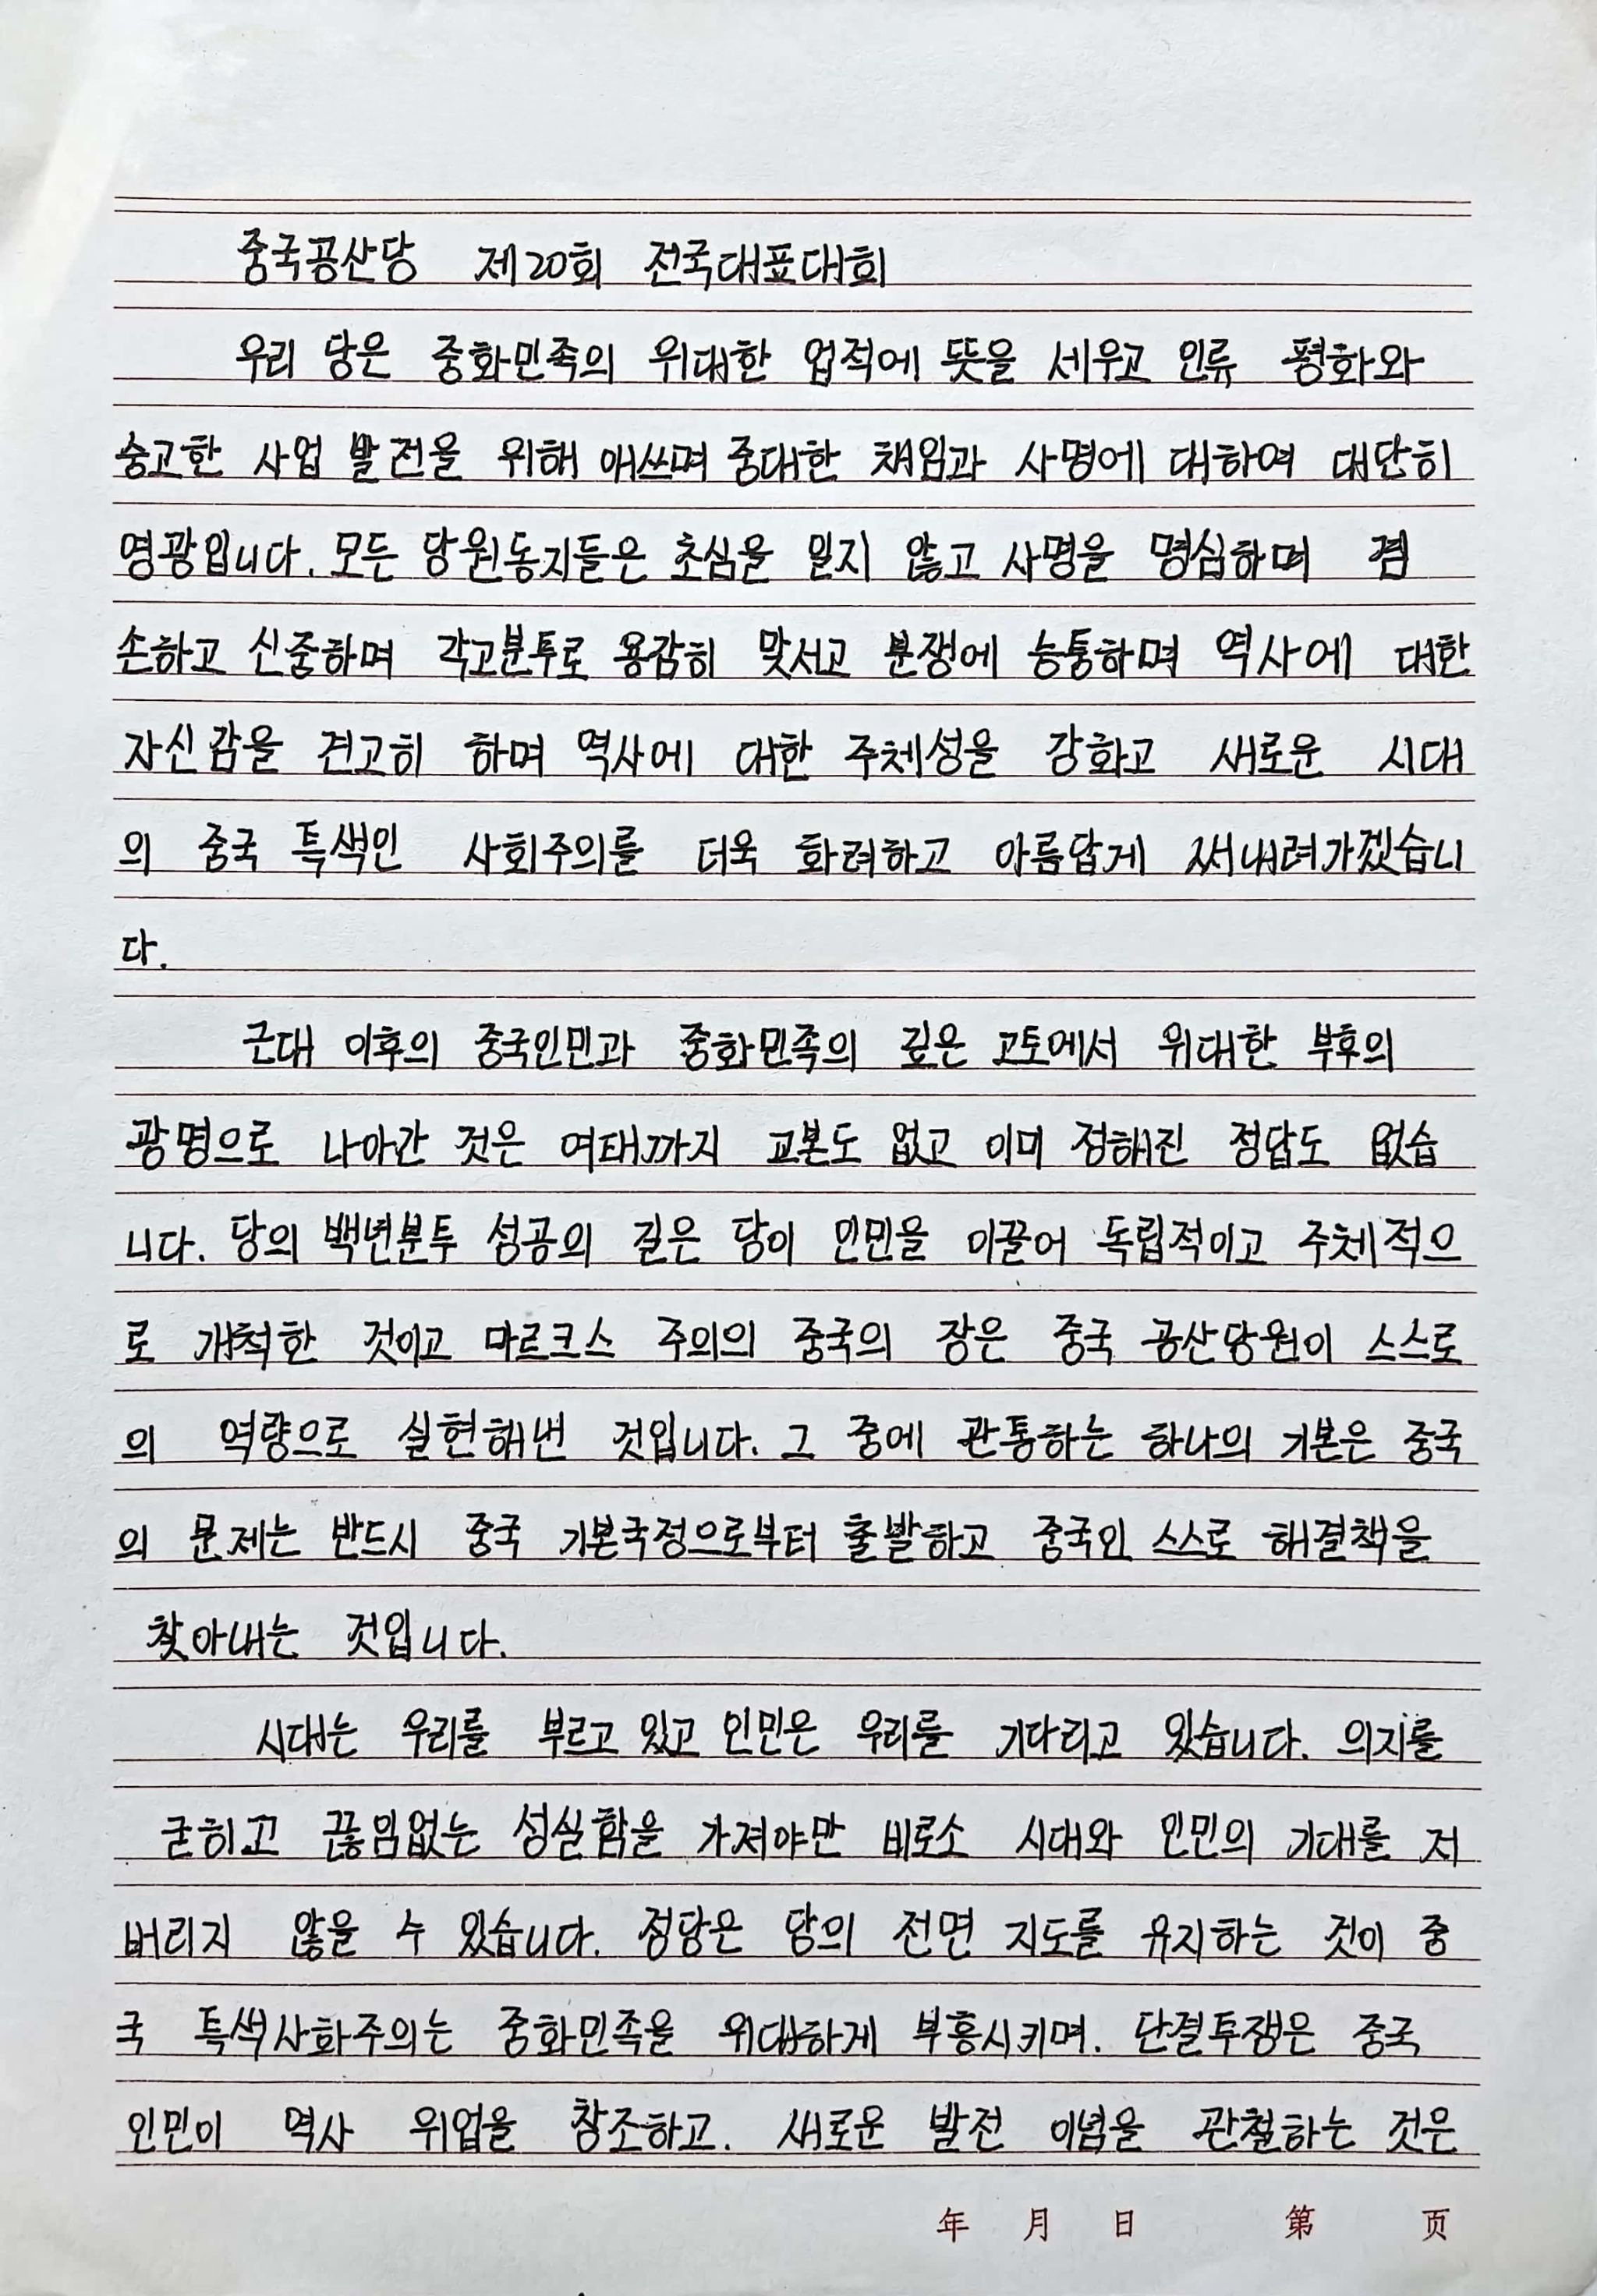 중국공산당 제20회 전국대표대회
우리 당은 중화민족의 위대한 업적에 뜻을 세우고 인류 평화와
숭고한 사업 발전을 위해 애쓰며 중대한 책임과 사명에 대하여 대단히
영광입니다. 모든 당원동지들은 초심을 잃지 않고 사명을 명심하며 겸
손하고 신중하며 각고분투로 용감히 맞서고 분쟁에 능통하며 역사에 대한
자신감을 견고히 하며 역사에 대한 주체성을 강화고 새로운 시대
의 중국 특색인 사회주의를 더욱 화려하고 아름답게 써내려가겠습니
다.
근대 이후의 중국인민과 중화민족의 깊은 고토에서 위대한 부후의
광명으로 나아간 것은 여태까지 교본도 없고 이미 정해진 정답도 없습
니다. 당의 백년분투 성공의 길은 당이 인민을 이끌어 독립적이고 주체적으
로 개척한 것이고 마르크스 주의의 중국의 장은 중국 공산당원이 스스로
의 역량으로 실현해낸 것입니다. 그 중에 관통하는 하나의 기본은 중국
의 문제는 반드시 중국 기본국정으로부터 출발하고 중국인 스스로 해결책을
찾아내는 것입니다.
시대는 우리를 부르고 있고 인민은 우리를 기다리고 있습니다. 의지를
굳히고 끊임없는 성실함을 가져야만 비로소 시대와 인민의 기대를 저
버리지 않을 수 있습니다. 정당은 당의 전면 지도를 유지하는 것이 중
국 특색사화주의는 중화민족을 위대하게 부흥시키며. 단결투쟁은 중국
인민이 역사 위업을 창조하고. 새로운 발전 이념을 관철하는 것은
年 月 日 第 页